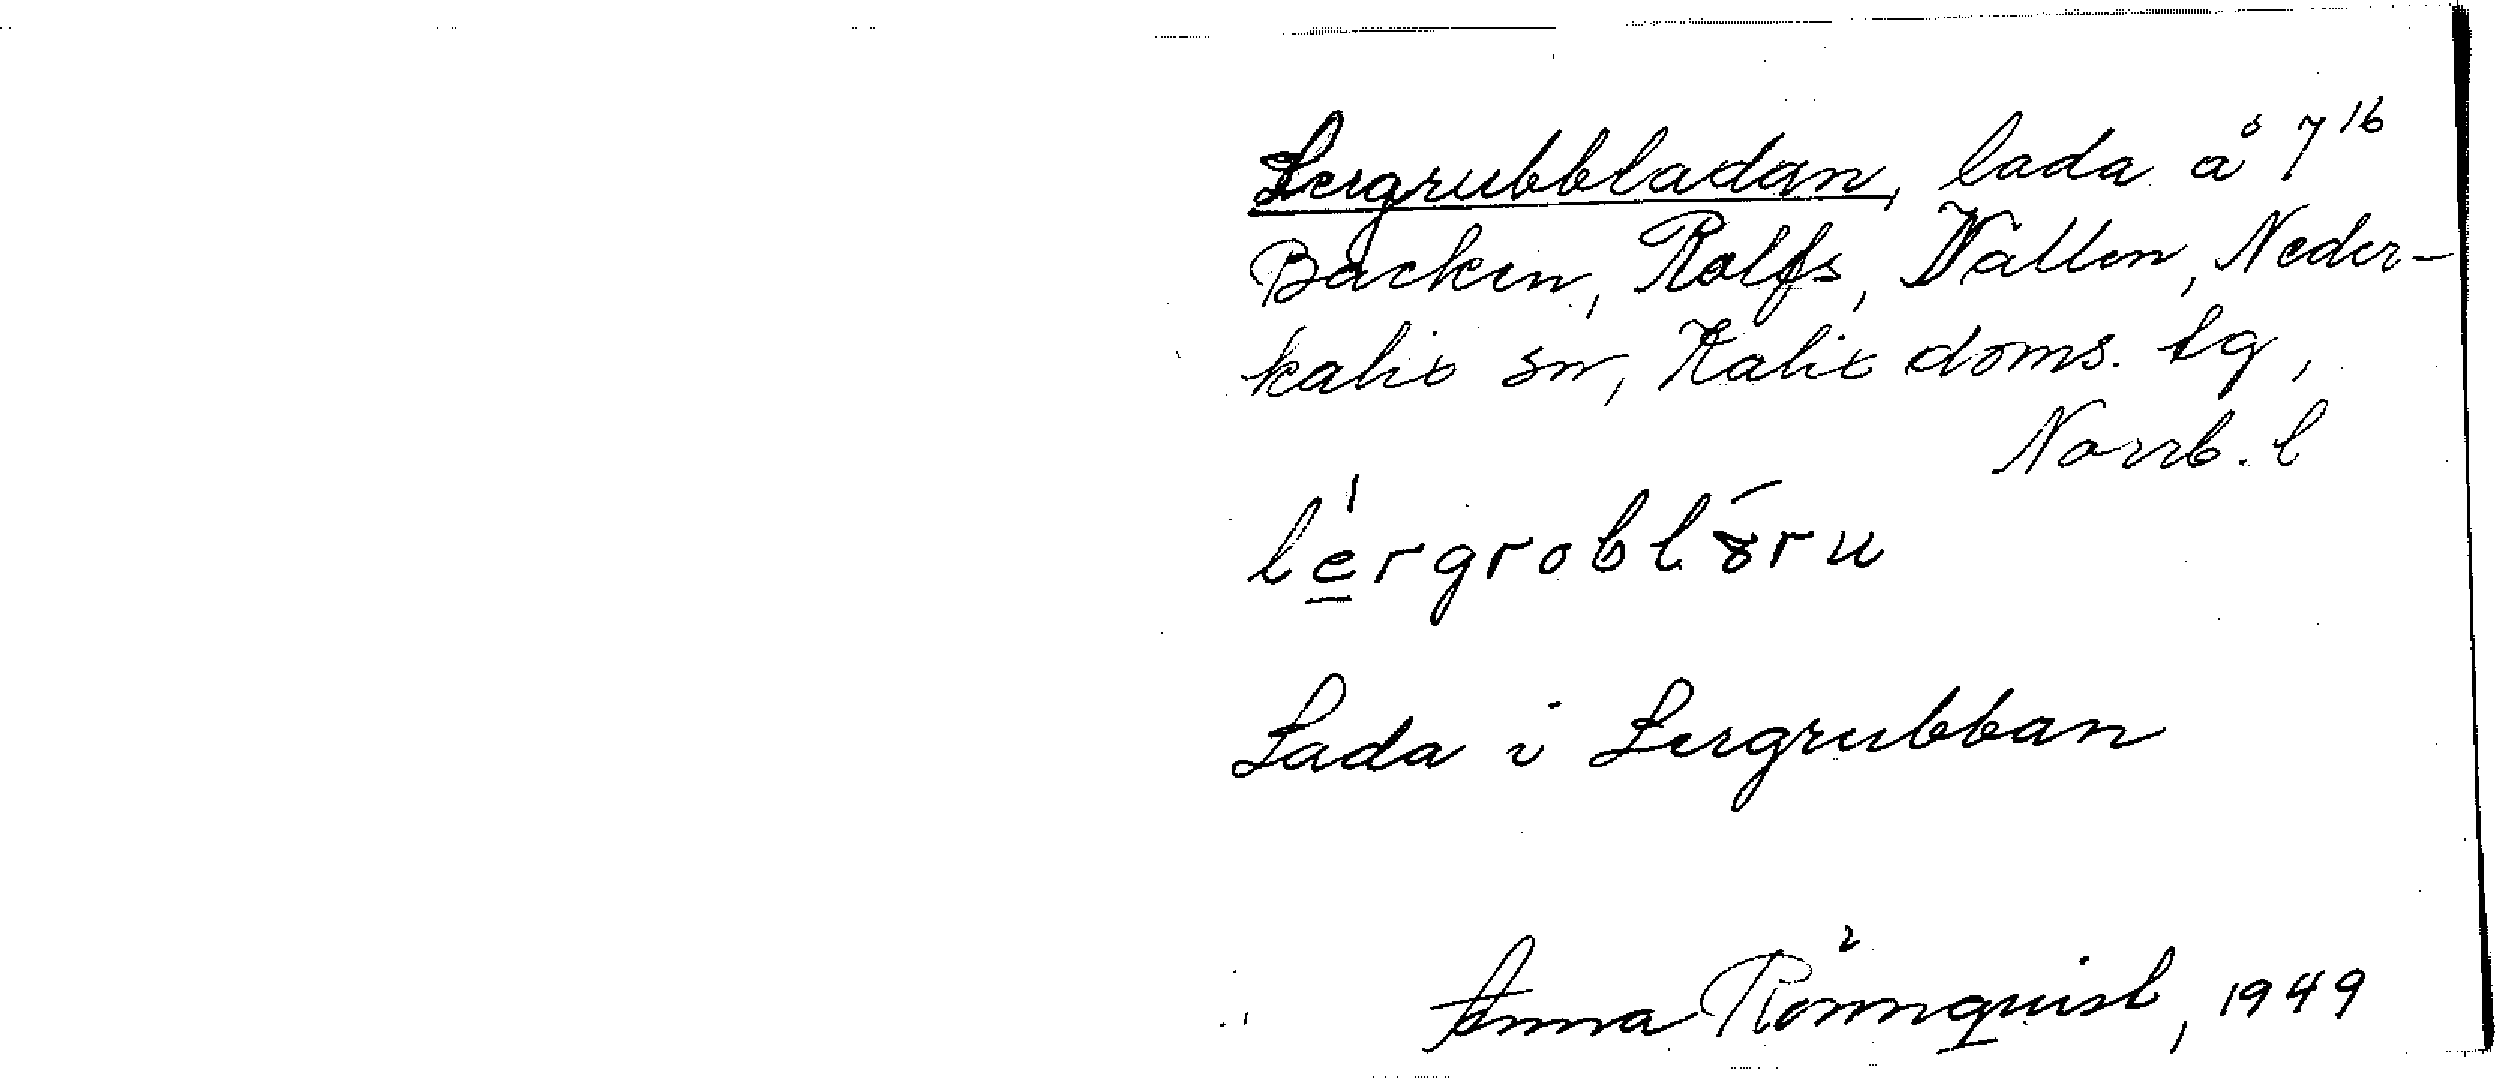 Lergrubbladan, lada å 7¹⁶
Backen, Rolfs, Vallen, Neder-
kalix sn, Kalix doms. tg,
Norrb. l
Lada i Lergrubban
Anna Rönnquist, 1949